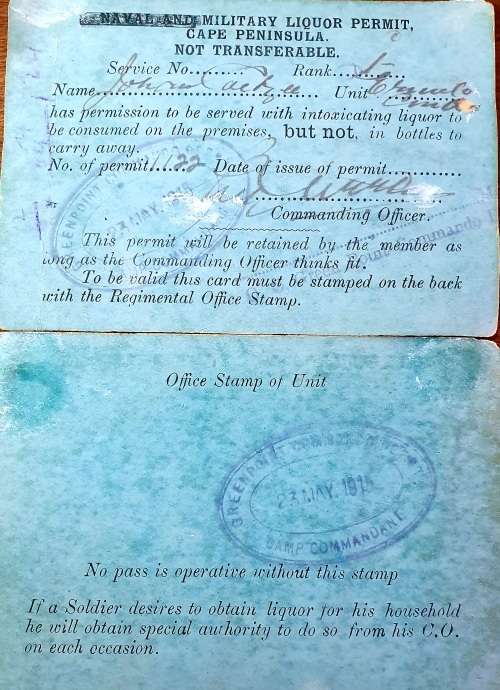 NAVAL AND MILITARY LIQUOR PERMIT,
CAPE PENINSULA.
NOT TRANSFERABLE.
Service No......... Rank.........
Name.............................. Unit
has permission to be served with intoxicating liquor to
be consumed on the premises, but not, in bottles to
carry away.
No. of permit 1122 Date of issue of permit............
Commanding Officer.
This permit will be retained by the member as
long as the Commanding Officer thinks fit.
To be valid this card must be stamped on the back
with the Regimental Office Stamp.
GREENPOINT
23 MAY. 191
Office Stamp of Unit
GREENPOINT
23 MAY. 191
CAMP COMMANDANT
No pass is operative without this stamp
If a Soldier desires to obtain liquor for his household
he will obtain special authority to do so from his C.O.
on each occasion.